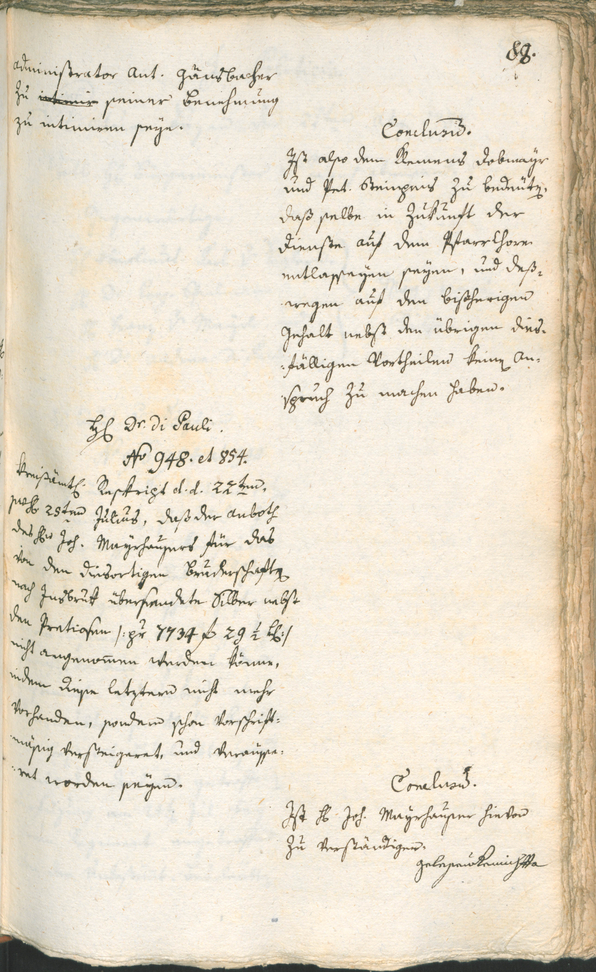 88.
administrator Ant. Gänsbacher
zu intimir seiner Benehmung
zu intimiren seye.
Conclusum.
Ist also dem Klemens Dobmayr
und Pet. Steinpeis zu bedeuten,
daß selbe in Zukunft der
Dienste auf dem Pfarrchore
entlassen seyen, und deß-
wegen auf den bisherigen
Gehalt nebst den übrigen dies-
fälligen Vortheilen keinen An-
spruch zu machen haben.
H. Dr. Di Pauli.
No 948. et 854.
Kreisämtl. Reskript d. d. 22ten,
pres. 25ten Julius, daß der Anboth
des Hrn Joh. Mayrhausers für das
von den diesortigen Bruderschaften
nach Insbruk übersendete Silber nebst
den Pretiosen /: pr 7734 f 29 ½ kr :/
nicht angenommen werden könne,
indem diese letztern nicht mehr
vorhanden, sondern schon vorschrift-
mäßig versteigeret, und veräusse-
ret worden seyen.
Conclusum.
Ist H. Joh. Mayrhauser hievon
zu verständigen.